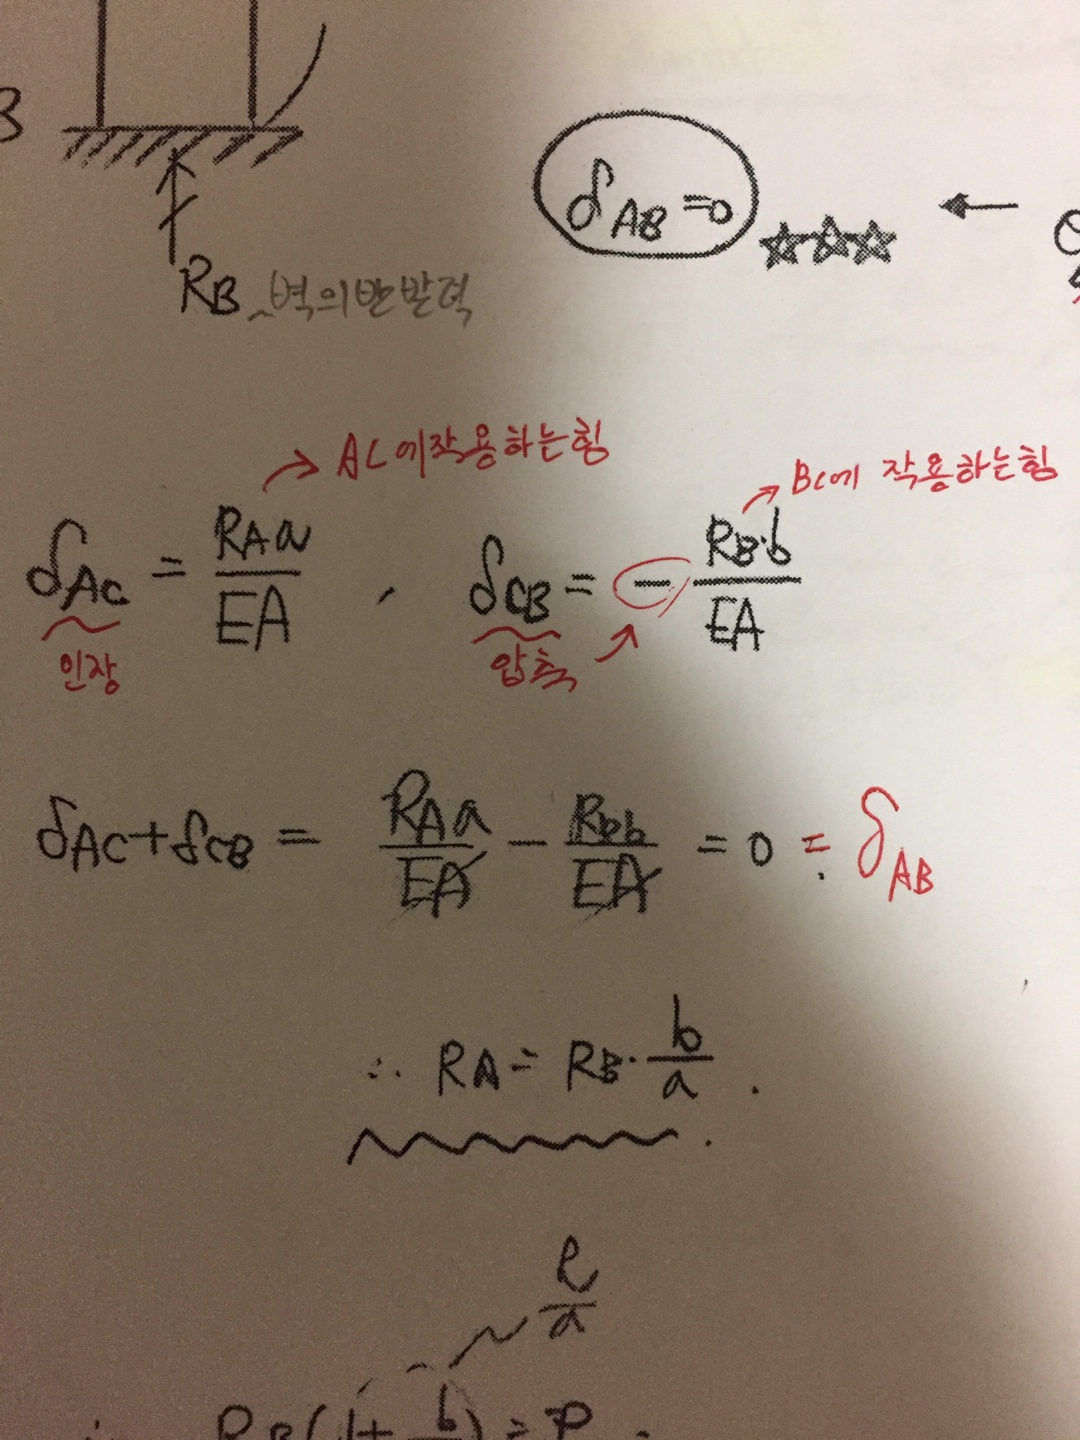 B
δAB = 0 ☆☆☆ ←
RB 벽의반발력
→ AC에작용하는힘
→ BC에 작용하는힘
δAC = RAa/EA , δCB = - RB·b/EA
인장 압축
δAC + δCB = RAa/EA - RBb/EA = 0 = δAB
∴ RA = RB · b/a .
ℓ/a
∴ RB(1 + b/) = P .